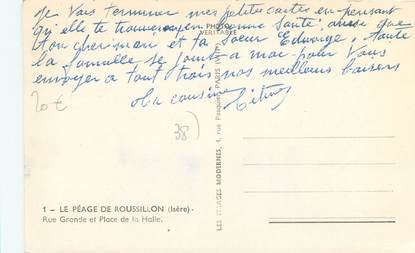 Je Vais terminer mes petites cartes en pensant
qu'elle te trouveront en bonne Santé ainsi que
ton cheri man et ta Soeur Edwige, toute
la famille se joint a moi pour Vous
envoyer a tout trois nos meilleurs baisers
ta cousine
20 €
38)
PHOTO
VERITABLE
LES IMAGES MODERNES, 4, rue Pasquier, PARIS (VIIIe)
1 - LE PÉAGE DE ROUSSILLON (Isère) -
Rue Grande et Place de la Halle.